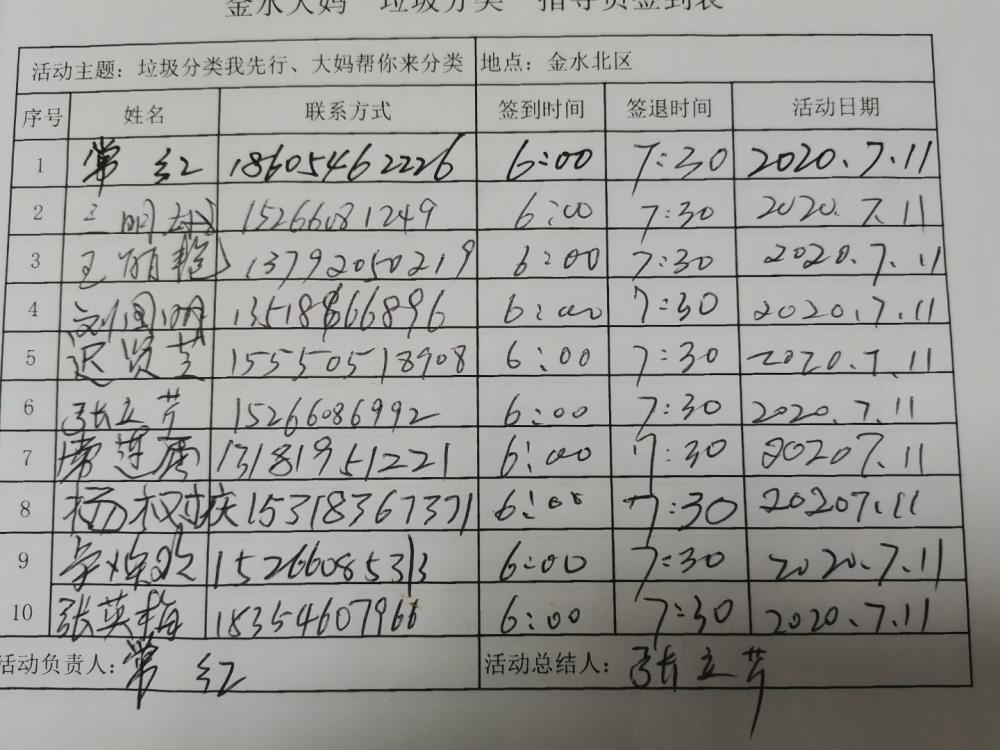 金水大妈"垃圾分类"指导员签到表
活动主题：垃圾分类我先行、大妈帮你来分类 地点：金水北区
序号 姓名 联系方式 签到时间 签退时间 活动日期
1 常红 18605462226 6:00 7:30 2020.7.11
2 15266081249 6:00 7:30 2020.7.11
3 王丽艳 13792050219 6:00 7:30 2020.7.11
4 刘国明 13518866896 6:00 7:30 2020.7.11
5 迟贤芝 15550518908 6:00 7:30 2020.7.11
6 张立芹 15266086992 6:00 7:30 2020.7.11
7 常莲香 13181951221 6:00 7:30 20207.11
8 杨树庆 15318367371 6:00 7:30 20207.11
9 15266085313 6:00 7:30 2020.7.11
10 张英梅 18354607966 6:00 7:30 2020.7.11
活动负责人：常红 活动总结人：张立芹